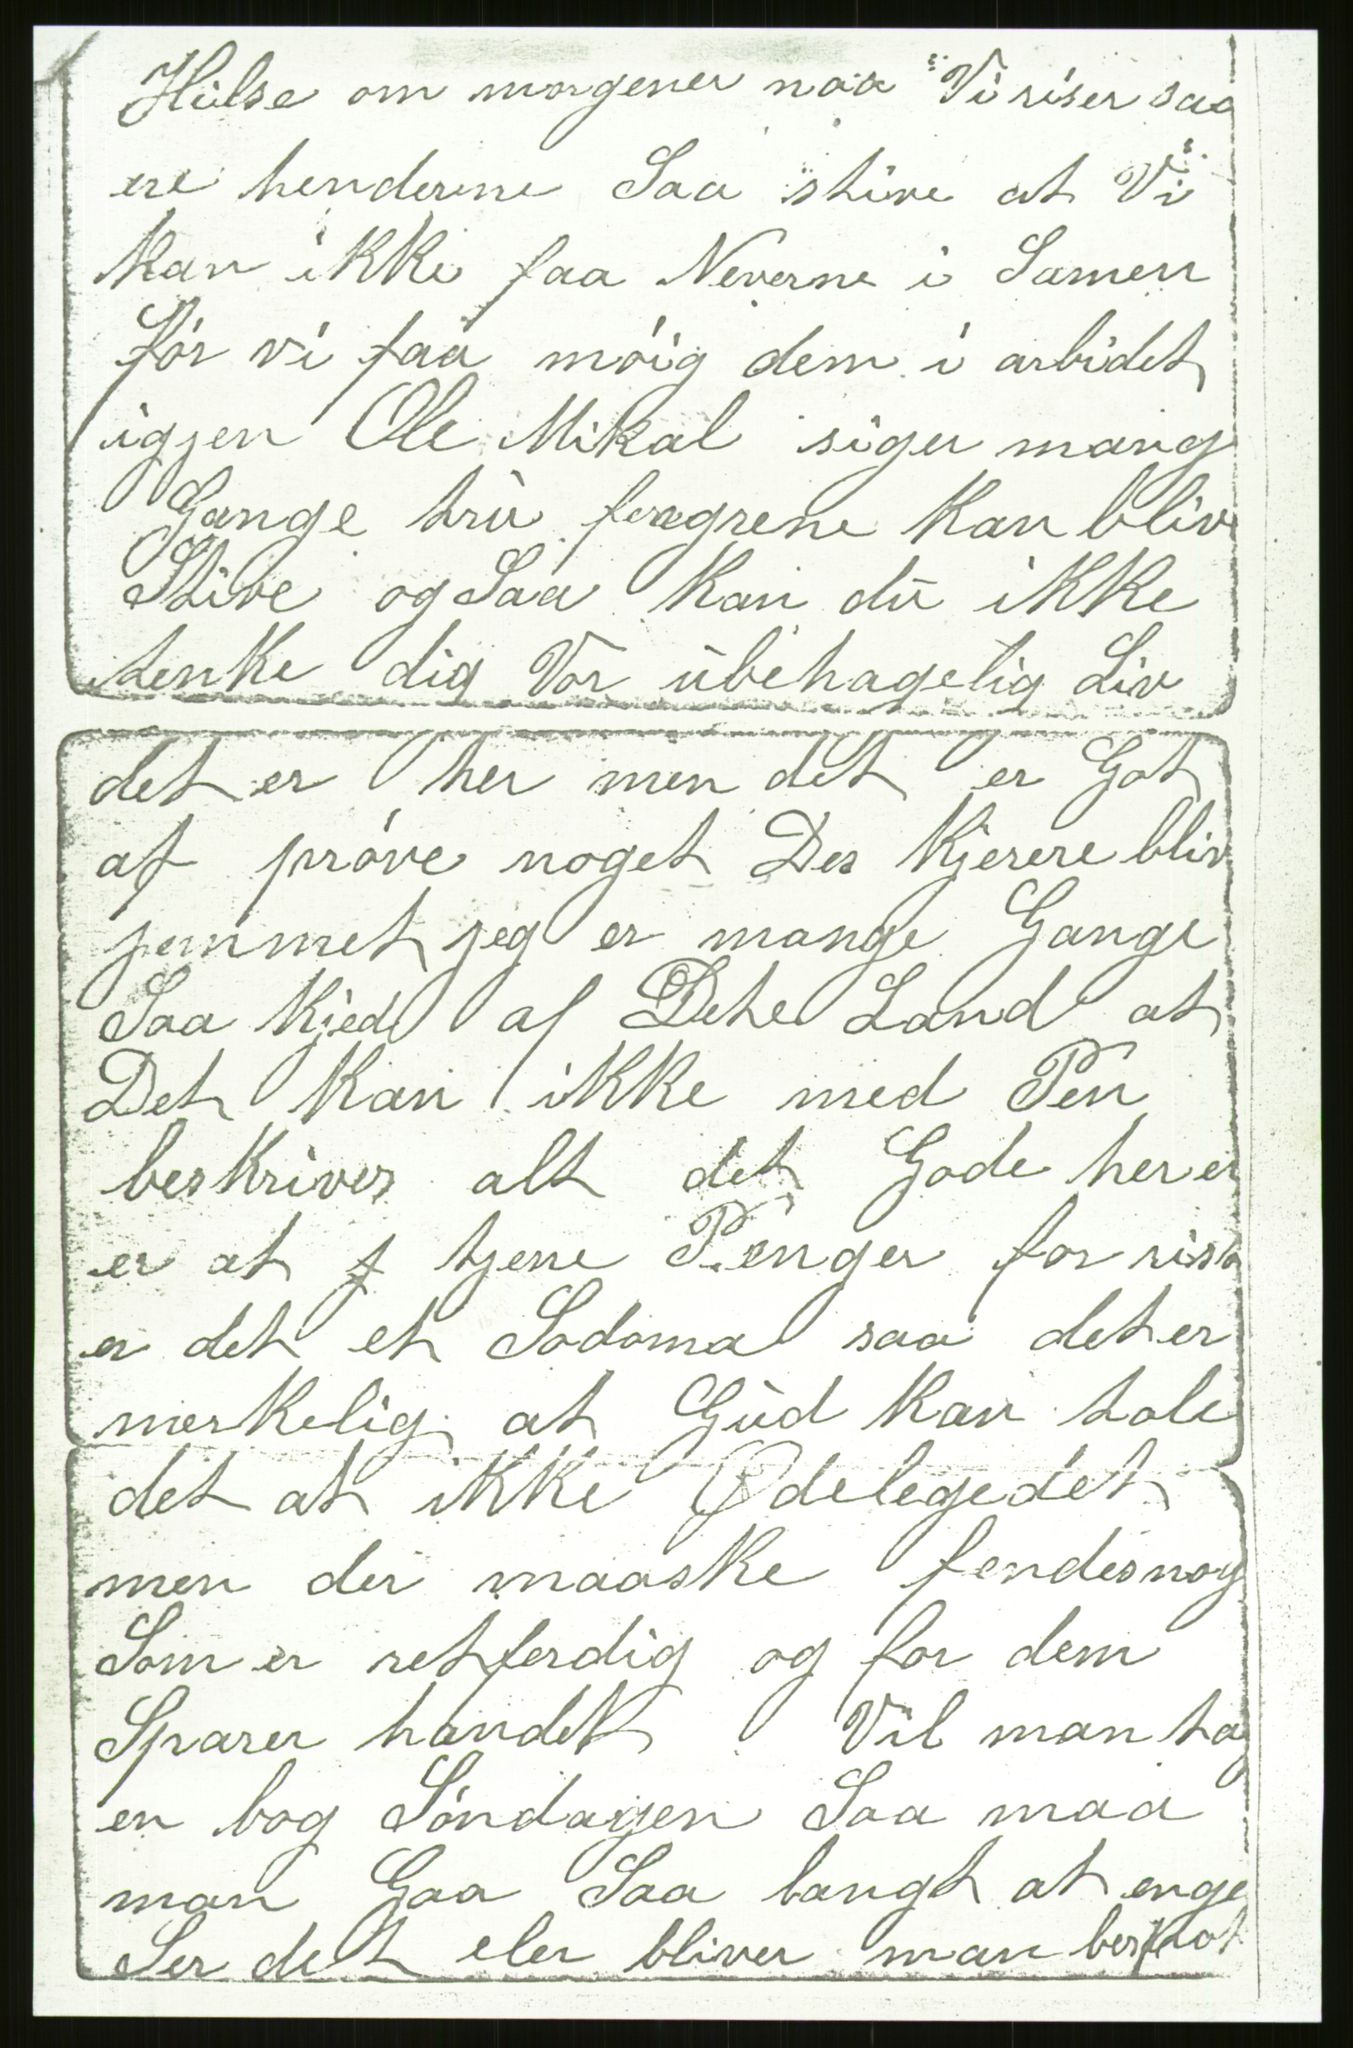 Hilse om morgener naa Vi riser saa
ere henderene Saa stive at Vi
kan ikke faa Neverne i Samen
för vi faa möig dem i arbidet
igjen Ole Mikal siger mang
Gange tru fregrene kan bliv
Stive og Saa kan du ikke
tenke dig Vor ubehagelig Liv
det er her men det er Got
af pröve noget Des kjerere bliv
jemmet jeg er mange Gange
Saa kjed af Dete Land at
Det kan ikke med Pen
beskrives alt det Gode her er
er at tjene Penger for rist
er det et Sodoma saa det er
merkelig at Gud kan tole
det at ikke Ødelegedet
men der maaske fendes nog
Som er retferdig og for dem
Sparer handet Vil man ta
en bog Söndagen Saa maa
man Gaa Saa langt at enge
Ser det eler bliver man bespot